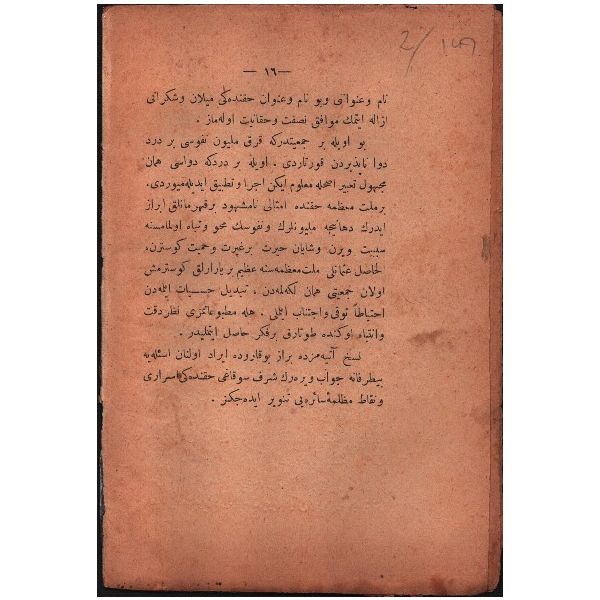 — ١٦ —
نام وعنوانی وبو نام وعنوان حقنده‌كی میلان وشكرانی
ازاله ایتمك موافق نصفت وحقانیت اوله‌ماز .
بو اویله بر جمعیتدركه قرق ملیون نفوسی بر درد
دوا ناپذیردن قورتاردی . اویله بر دردكه دواسی همان
مجهول تعبیر اصحله معلوم ایكن اجرا وتطبیق ایدیله‌میوردی .
بر ملت معظمه حقنده امثالی نامشهود بر قهرمانلق ابراز
ایدرك دهانجه ملیونلرك ونفوسك محو وتباه اولمامسنه
سببیت ویرن وشایان حیرت بر غیرت وحمیت كوسترن ،
الحاصل عثمانلی ملت معظمه‌سنه عظیم بر یارارلق كوسترمش
اولان جمعیتی همان لكه‌له‌مدن ، تبدیل حسیات ایله‌دن
احتیاطاً توقی واجتناب ایتملی . هله مطبوعاتمزی نظر دقت
وانتباه اوكنده طوتارق بر فكر حاصل ایتملیدر .
نسخ آتیه‌مزده براز یوقاروده ایراد اولنان اسئله‌یه
بیطرفانه جواب ویره‌رك شرف سوقاغی حقنده‌كی اسراری
ونقاط مظلمهٔ سائره‌یی تنویر ایده‌جكز .